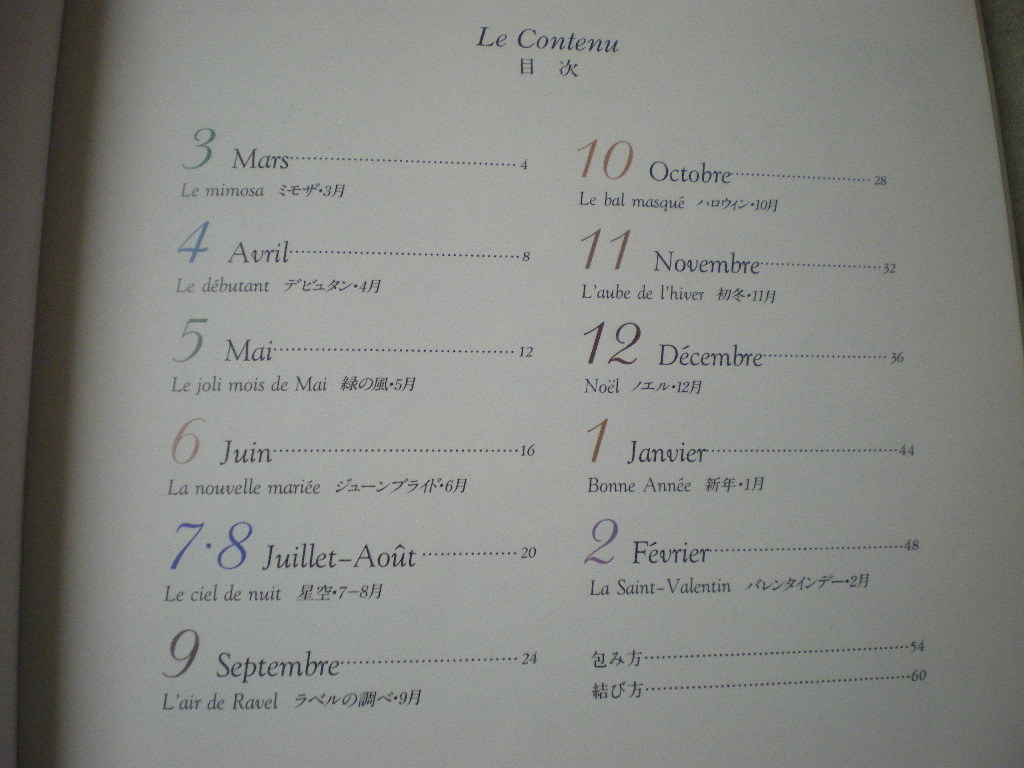 Le Contenu
目 次
3 Mars 4
Le mimosa ミモザ・3月
4 Avril 8
Le débutant デビュタン・4月
5 Mai 12
Le joli mois de Mai 緑の風・5月
6 Juin 16
La nouvelle mariée ジューンブライド・6月
7・8 Juillet–Août 20
Le ciel de nuit 星空・7–8月
9 Septembre 24
L'air de Ravel ラベルの調べ・9月
10 Octobre 28
Le bal masqué ハロウィン・10月
11 Novembre 32
L'aube de l'hiver 初冬・11月
12 Décembre 36
Noël ノエル・12月
1 Janvier 44
Bonne Année 新年・1月
2 Février 48
La Saint–Valentin バレンタインデー・2月
包み方 54
結び方 60